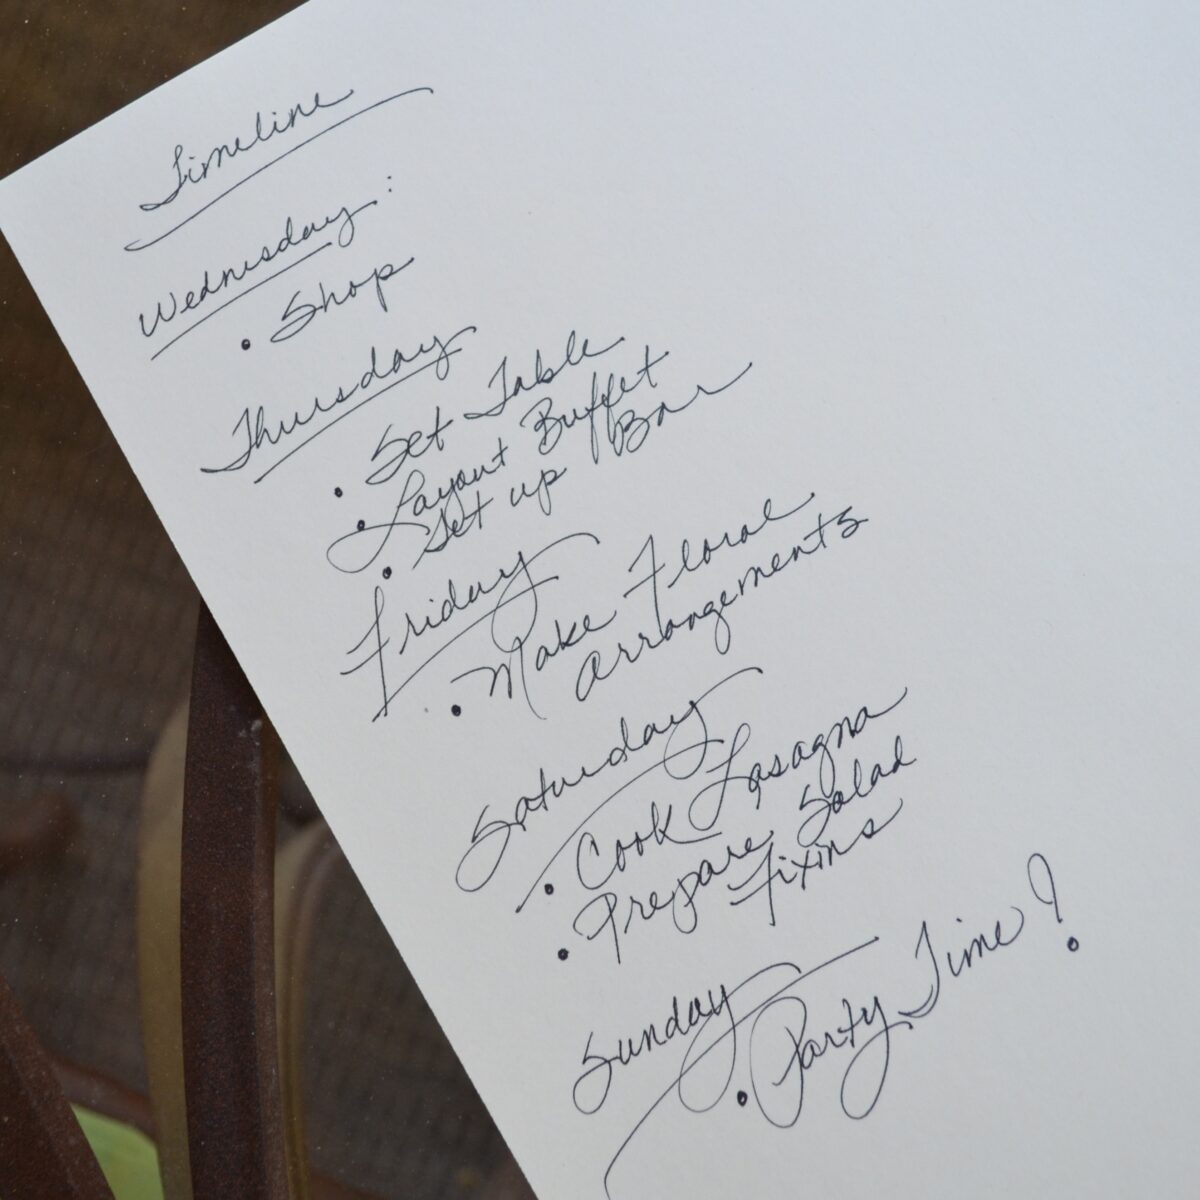 Timeline
Wednesday:
• Shop
Thursday
• Set Table
• Layout Buffet
• Set up Bar
Friday
• Make Floral
Arrangements
Saturday
• Cook Lasagna
• Prepare Salad
Fixins
Sunday
• Party Time!